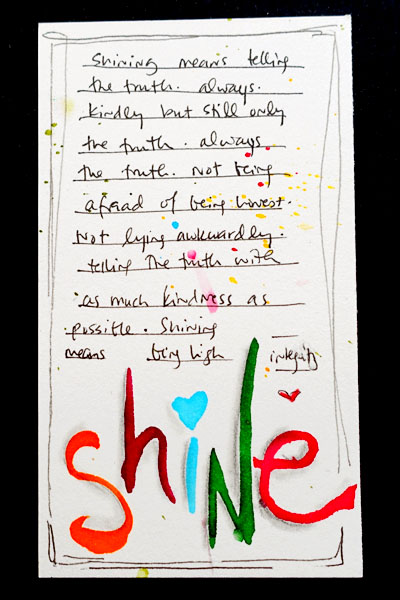 Shining means telling
the truth. always.
kindly but still only
the truth. always
the truth. not being
afraid of being honest.
Not lying awkwardly.
telling The truth with
as much kindness as
possible. Shining
means being high integrity
shiNe